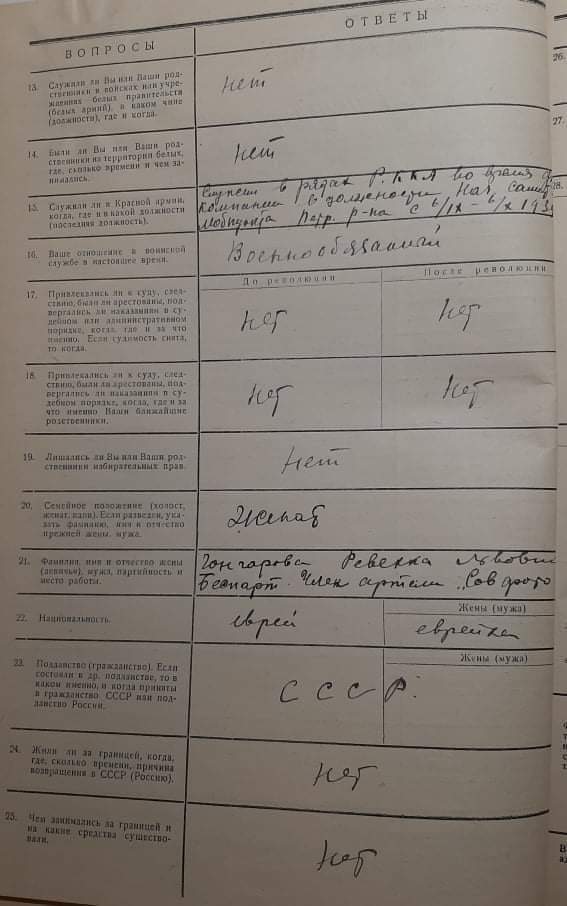 ВОПРОСЫ
ОТВЕТЫ
13. Служили ли Вы или Ваши род-
ственники в войсках или учре-
ждениях белых правительств
(белых армий), в каком чине
(должности), где и когда.
нет
14. Были ли Вы или Ваши род-
ственники на территории белых,
где, сколько времени и чем за-
нимались.
нет
15. Служили ли в Красной армии,
когда, где и в какой должности
(последняя должность).
Служил в рядах Р.К.К.А во время
компании в должности Нач.
Мобпункта Петр. р-на с 6/IX - 6/X 193
16. Ваше отношение к воинской
службе в настоящее время.
Военнообязанный
До революции
После революции
17. Привлекались ли к суду, след-
ствию, были ли арестованы, под-
вергались ли наказаниям в су-
дебном или административном
порядке, когда, где и за что
именно. Если судимость снята,
то когда.
нет
нет
18. Привлекались ли к суду, след-
ствию, были ли арестованы, под-
вергались ли наказаниям в су-
дебном порядке, когда, где и за
что именно Ваши ближайшие
родственники.
нет
нет
19. Лишались ли Вы или Ваши род-
ственники избирательных прав.
нет
20. Семейное положение (холост,
женат, вдов). Если разведен, ука-
зать фамилию, имя и отчество
прежней жены, мужа.
Женат
21. Фамилия, имя и отчество жены
(девичья), мужа, партийность и
место работы.
Гончарова Ревекка Львовн
Беспарт. Член артели „Совфото
22. Национальность.
еврей
Жены (мужа)
еврейка
23. Подданство (гражданство). Если
состояли в др. подданстве, то в
каком именно, и когда приняты
в гражданство СССР или под-
данство России.
Жены (мужа)
СССР.
24. Жили ли за границей, когда,
где, сколько времени, причина
возвращения в СССР (Россию).
нет
25. Чем занимались за границей и
на какие средства существо-
вали.
нет
26.
27.
28.